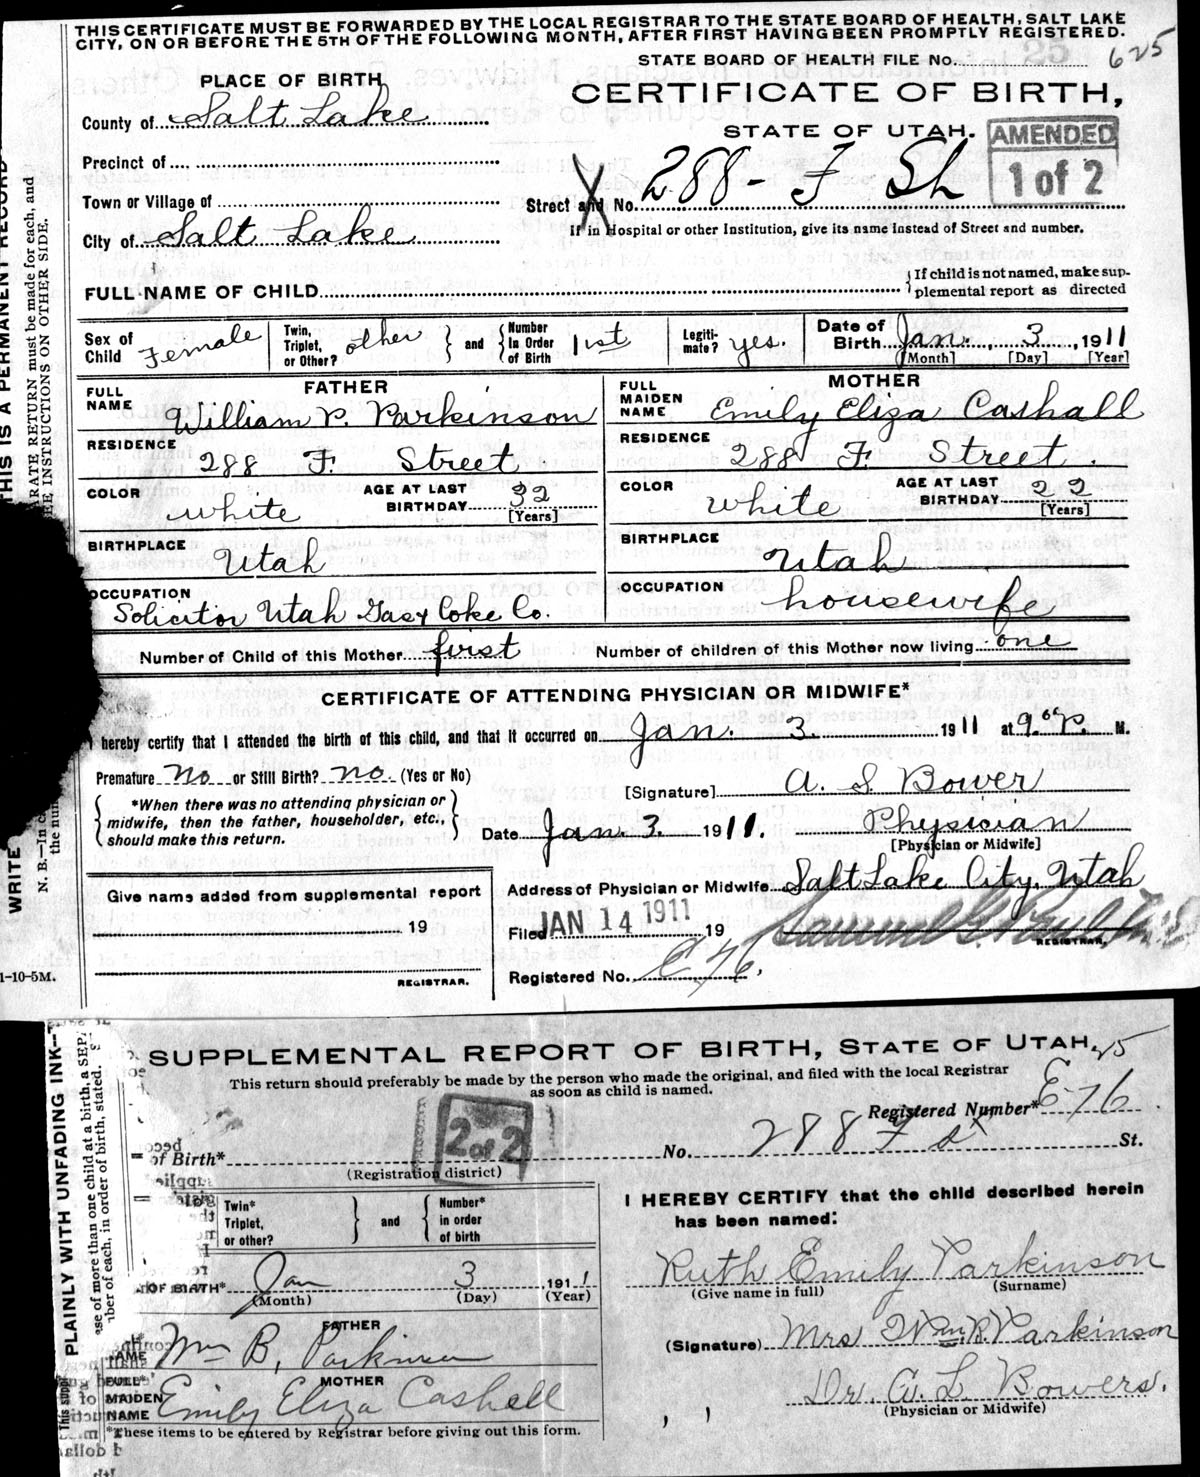 THIS CERTIFICATE MUST BE FORWARDED BY THE LOCAL REGISTRAR TO THE STATE BOARD OF HEALTH, SALT LAKE
CITY, ON OR BEFORE THE 5TH OF THE FOLLOWING MONTH, AFTER FIRST HAVING BEEN PROMPTLY REGISTERED.
STATE BOARD OF HEALTH FILE No. 625
PLACE OF BIRTH
CERTIFICATE OF BIRTH,
County of Salt Lake
STATE OF UTAH.
AMENDED
1 of 2
Precinct of
Town or Village of
Street and No. 288 - F St
City of Salt Lake
If in Hospital or other Institution, give its name instead of Street and number.
FULL NAME OF CHILD
If child is not named, make sup-
plemental report as directed
Sex of Child Female
Twin, Triplet, or Other? other
and
Number In Order of Birth 1st
Legiti- mate? yes.
Date of Birth Jan. 3 1911
[Month] [Day] [Year]
FATHER
FULL NAME William P. Parkinson
RESIDENCE 288 F. Street
COLOR white
AGE AT LAST BIRTHDAY 32
[Years]
BIRTHPLACE Utah
OCCUPATION
Solicitor Utah Gas & Coke Co.
MOTHER
FULL MAIDEN NAME Emily Eliza Cashall
RESIDENCE 288 F. Street.
COLOR white
AGE AT LAST BIRTHDAY 22
[Years]
BIRTHPLACE Utah
OCCUPATION housewife
Number of Child of this Mother first
Number of children of this Mother now living one
CERTIFICATE OF ATTENDING PHYSICIAN OR MIDWIFE*
I hereby certify that I attended the birth of this child, and that it occurred on Jan. 3. 1911 at 9 P. M.
Premature No or Still Birth? no. (Yes or No)
*When there was no attending physician or
midwife, then the father, householder, etc.,
should make this return.
[Signature] A. S. Bower
Date Jan. 3. 1911. Physician
[Physician or Midwife]
Address of Physician or Midwife Salt Lake City, Utah
Give name added from supplemental report
19
REGISTRAR.
Filed JAN 14 1911 19
REGISTRAR.
Registered No. E 76.
THIS IS A PERMANENT RECORD
RATE RETURN must be made for each, and
EE INSTRUCTIONS ON OTHER SIDE.
WRITE
N. B.—In c
the nu
1-10-5M.
SUPPLEMENTAL REPORT OF BIRTH, STATE OF UTAH.
This return should preferably be made by the person who made the original, and filed with the local Registrar
as soon as child is named.
Registered Number* E-76
2 of 2
No. 288 F St St.
of Birth*
(Registration district)
Twin* Triplet, or other?
and
Number* in order of birth
OF BIRTH* Jan 3 1911
(Month) (Day) (Year)
FATHER
NAME Wm B. Parkinson
MOTHER
FULL* MAIDEN NAME Emily Eliza Cashell
*These items to be entered by Registrar before giving out this form.
I HEREBY CERTIFY that the child described herein
has been named:
Ruth Emily Parkinson
(Give name in full) (Surname)
(Signature) Mrs Wm. B. Parkinson
Dr. A. L. Bowers.
(Physician or Midwife)
PLAINLY WITH UNFADING INK—
ase of more than one child at a birth, a SEP
ber of each, in order of birth, stated.
This suppl